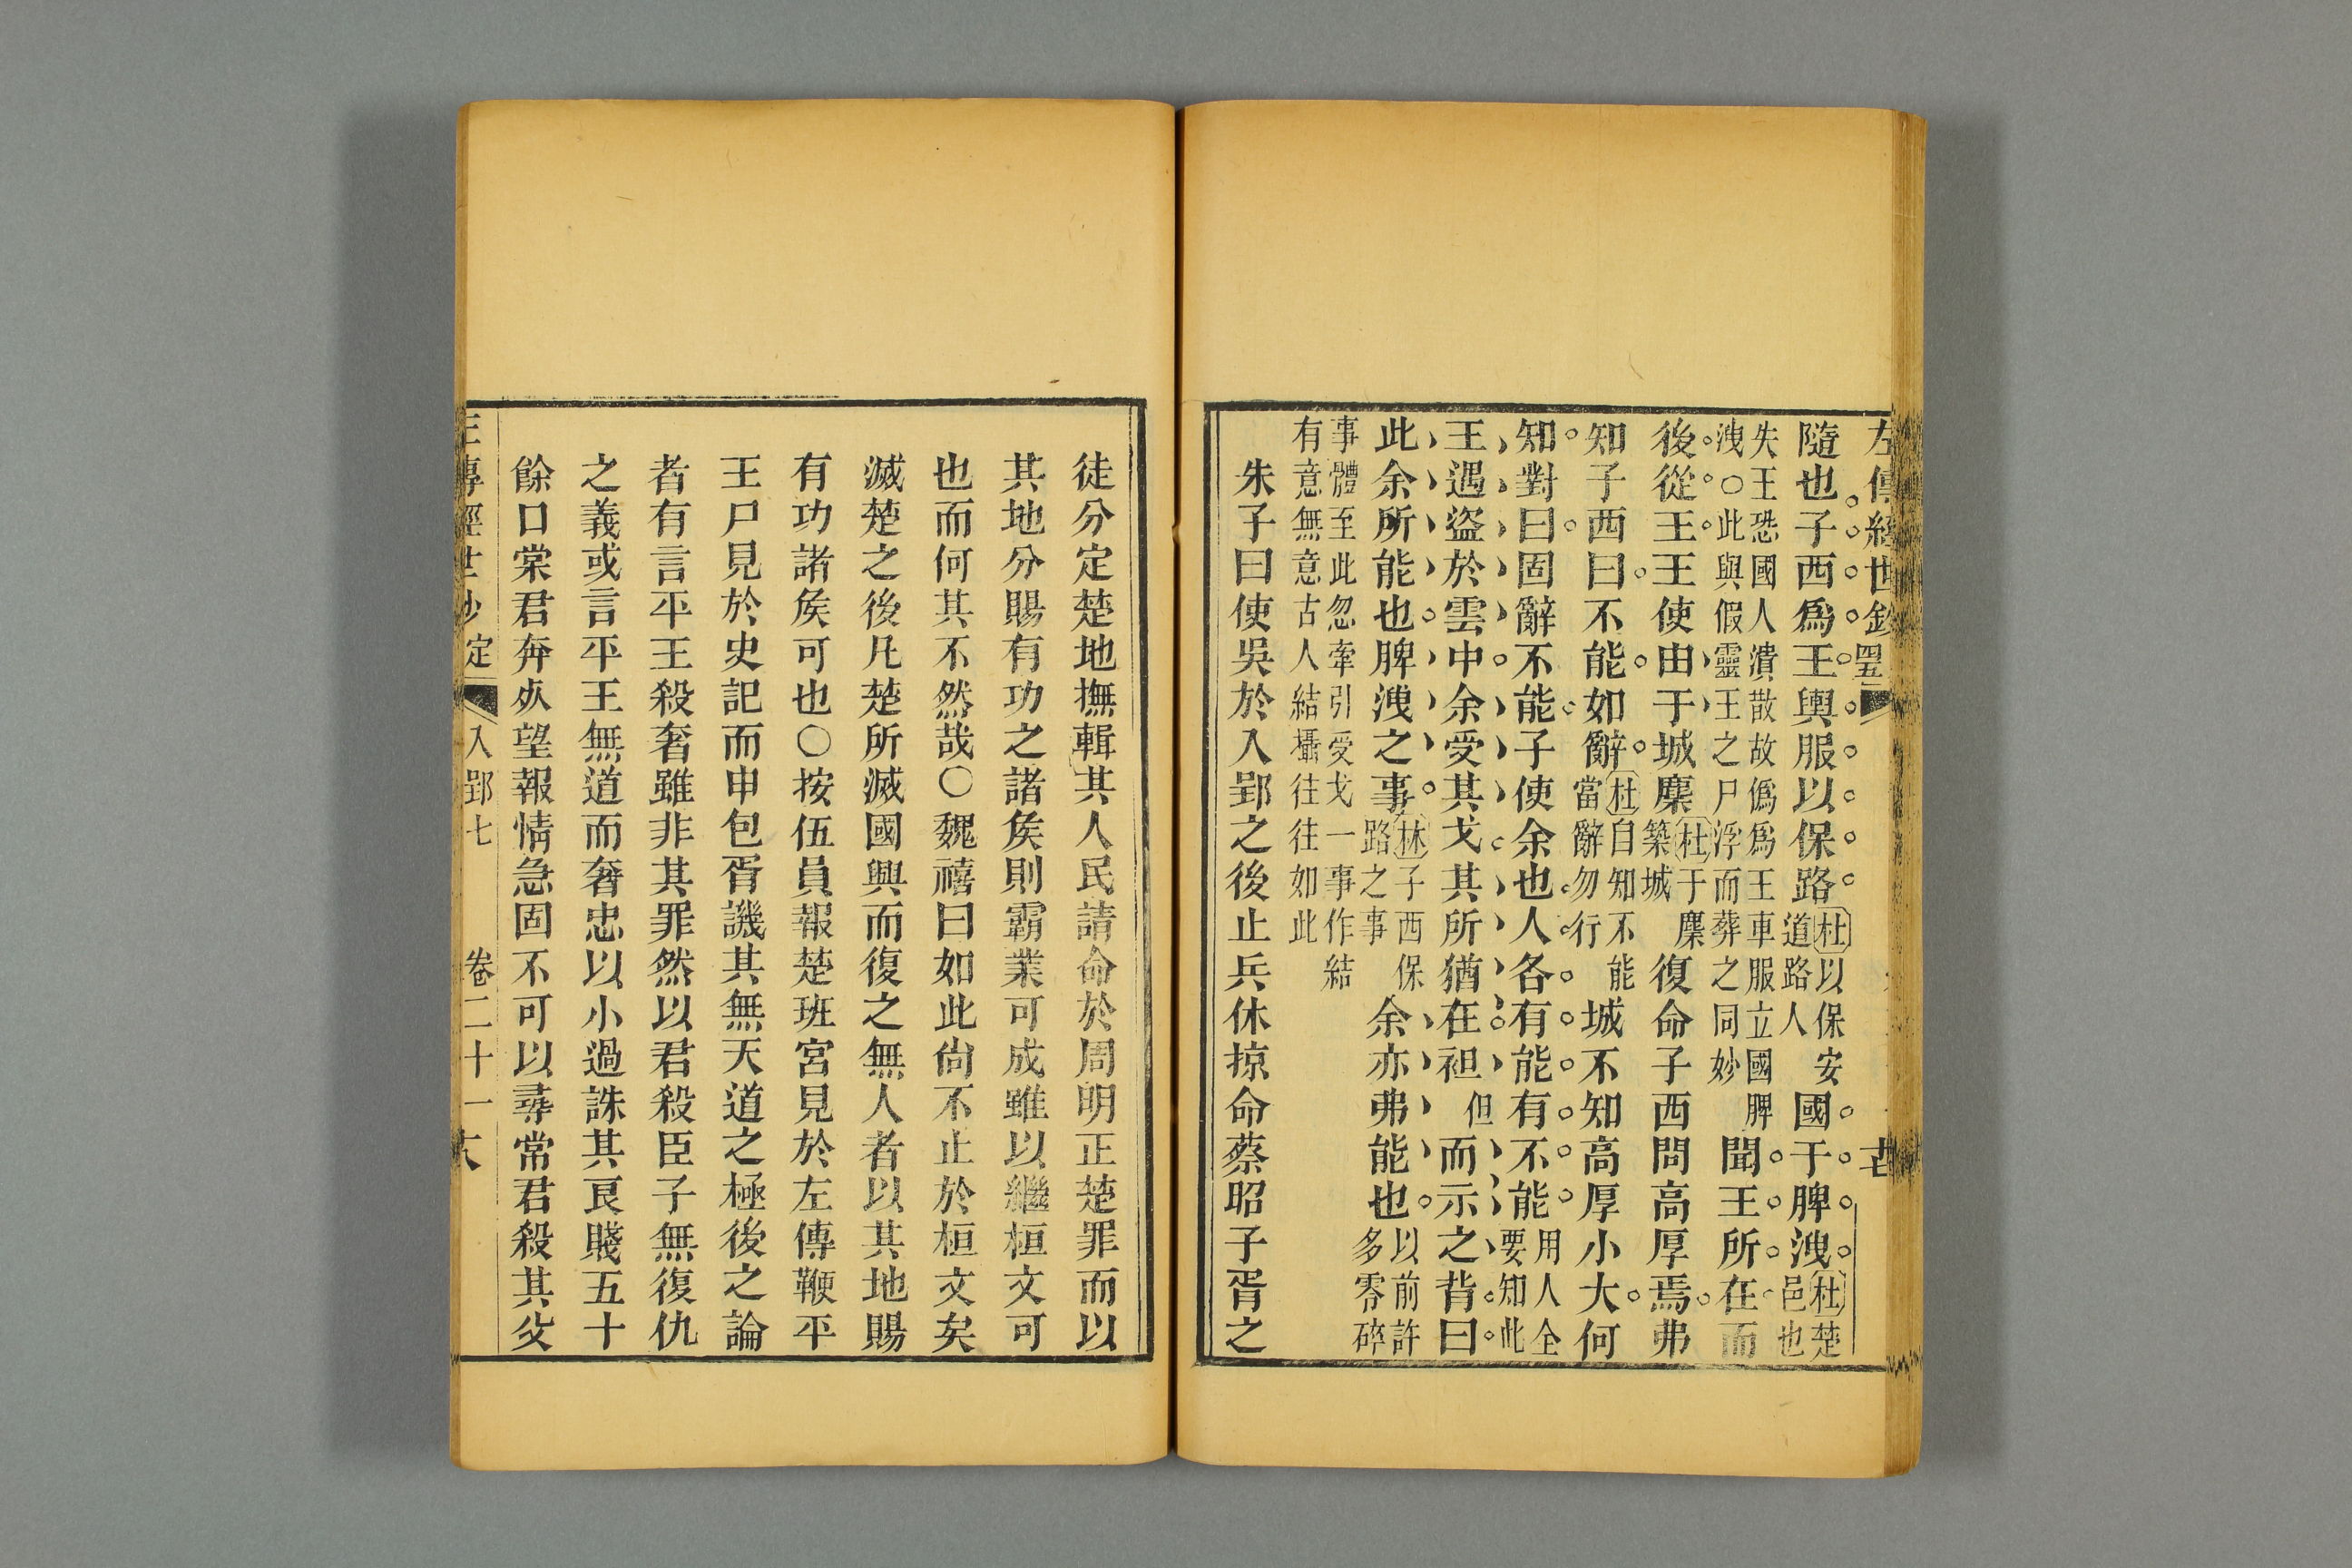 左傳經世鈔
隨也子西爲王輿服以保路杜以保安道路人國于脾洩杜楚邑也
失王恐國人潰散故僞爲王車服立國脾洩○此與假靈王之尸浮而葬之同妙聞王所在而
後從王王使由于城麇杜于麇築城復命子西問高厚焉弗
知子西曰不能如辭杜自知不能當辭勿行城不知高厚小大何
知對曰固辭不能子使余也人各有能有不能用人全要知此
王遇盜於雲中余受其戈其所猶在袒但而示之背曰
此余所能也脾洩之事林子西保路之事余亦弗能也以前許多零碎
事體至此忽牽引受戈一事作結有意無意古人結攝往往如此
朱子曰使吳於入郢之後止兵休掠命蔡昭子胥之
徒分定楚地撫輯其人民請命於周明正楚罪而以
其地分賜有功之諸矦則霸業可成雖以繼桓文可
也而何其不然哉○魏禧曰如此尙不止於桓文矣
滅楚之後凡楚所滅國興而復之無人者以其地賜
有功諸矦可也○按伍員報楚班宮見於左傳鞭平
王尸見於史記而申包胥譏其無天道之極後之論
者有言平王殺奢雖非其罪然以君殺臣子無復仇
之義或言平王無道而奢忠以小過誅其良賤五十
餘口棠君奔㱕望報情急固不可以尋常君殺其父
左傳經世鈔定 入郢七 卷二十一 六